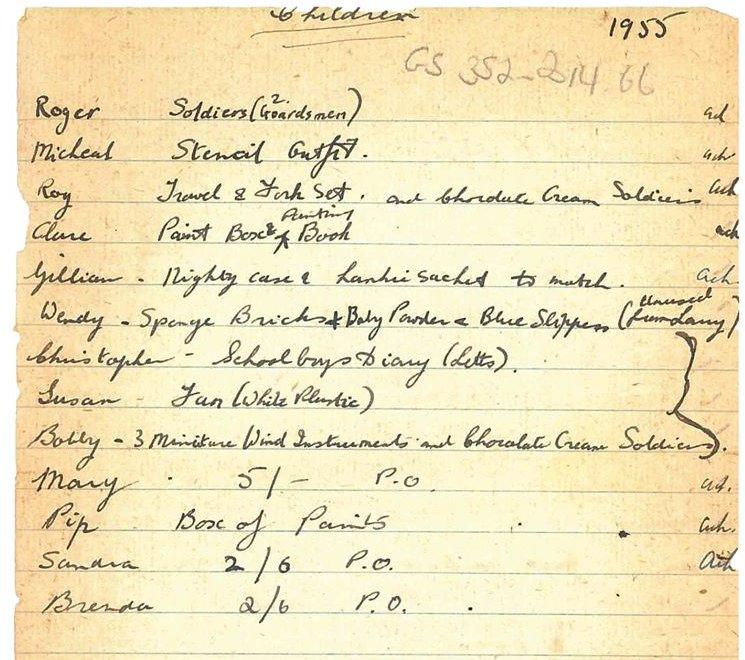 Children 1955
GS 352-2014.66
Roger Soldiers (2 Guardsmen) ack
Micheal Stencil Outfit. ack
Roy Trowel & Fork Set. and Chocolate Cream Soldiers ack
Clare Paint Box & Painting Book ack
Gillian - Nighty case & hankie sachet to match. ack
Wendy - Sponge Bricks & Baby Powder & Blue Slippers (unused
Christopher - Schoolboys Diary (Letts).
Susan - Fan (White Plastic)
Bobby - 3 Miniture Wind Instruments and Chocolate Cream Soldiers.
Mary 5/- P.O. ack.
Pip Box of Paints ack.
Sandra 2/6 P.O. Ack
Brenda 2/6 P.O.